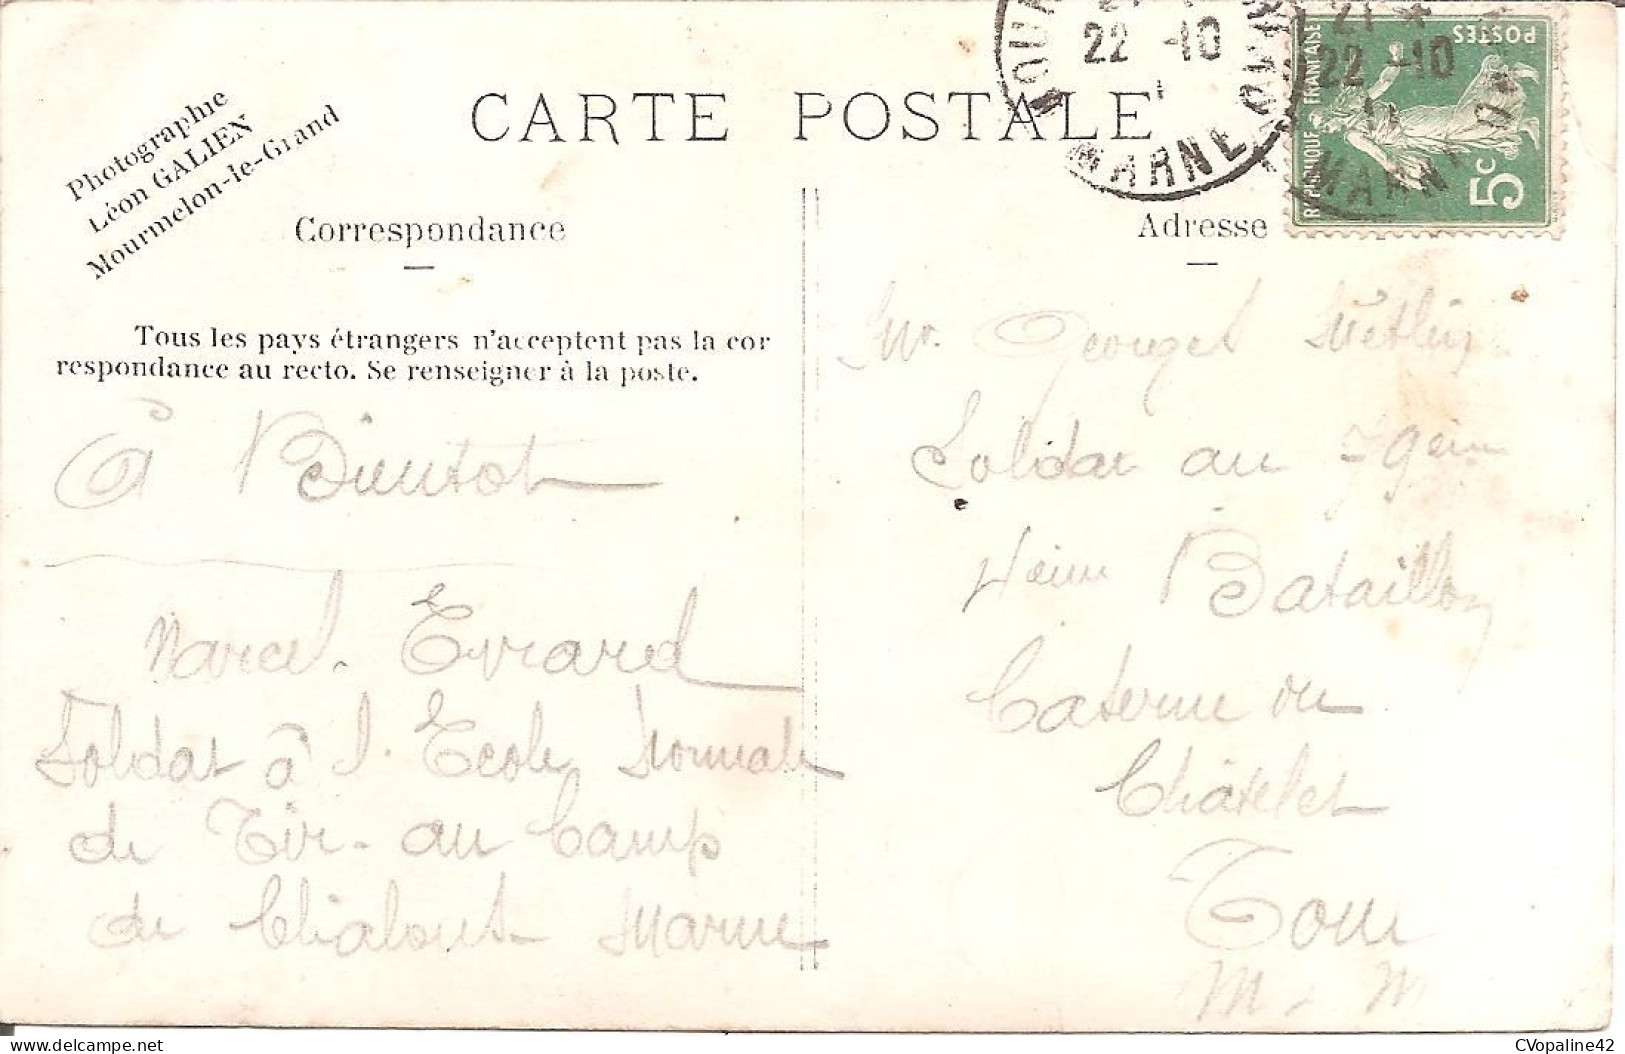 Photographe
Léon GALIEN
Mourmelon-le-Grand
CARTE POSTALE
22 -10
MARNE
22 -10
REPUBLIQUE FRANÇAISE
POSTES
5c
Correspondance
Adresse
Tous les pays étrangers n'acceptent pas la cor
respondance au recto. Se renseigner à la poste.
à Bientot
Marcel Evrard
Soldat à l'Ecole Normale
de Tir au Camp
de Chalons Marne
Mr. Georges
Soldat au 79eme
4eme Bataillon
Caserne du
Châtelet
Toul
M. M
CVopaline42